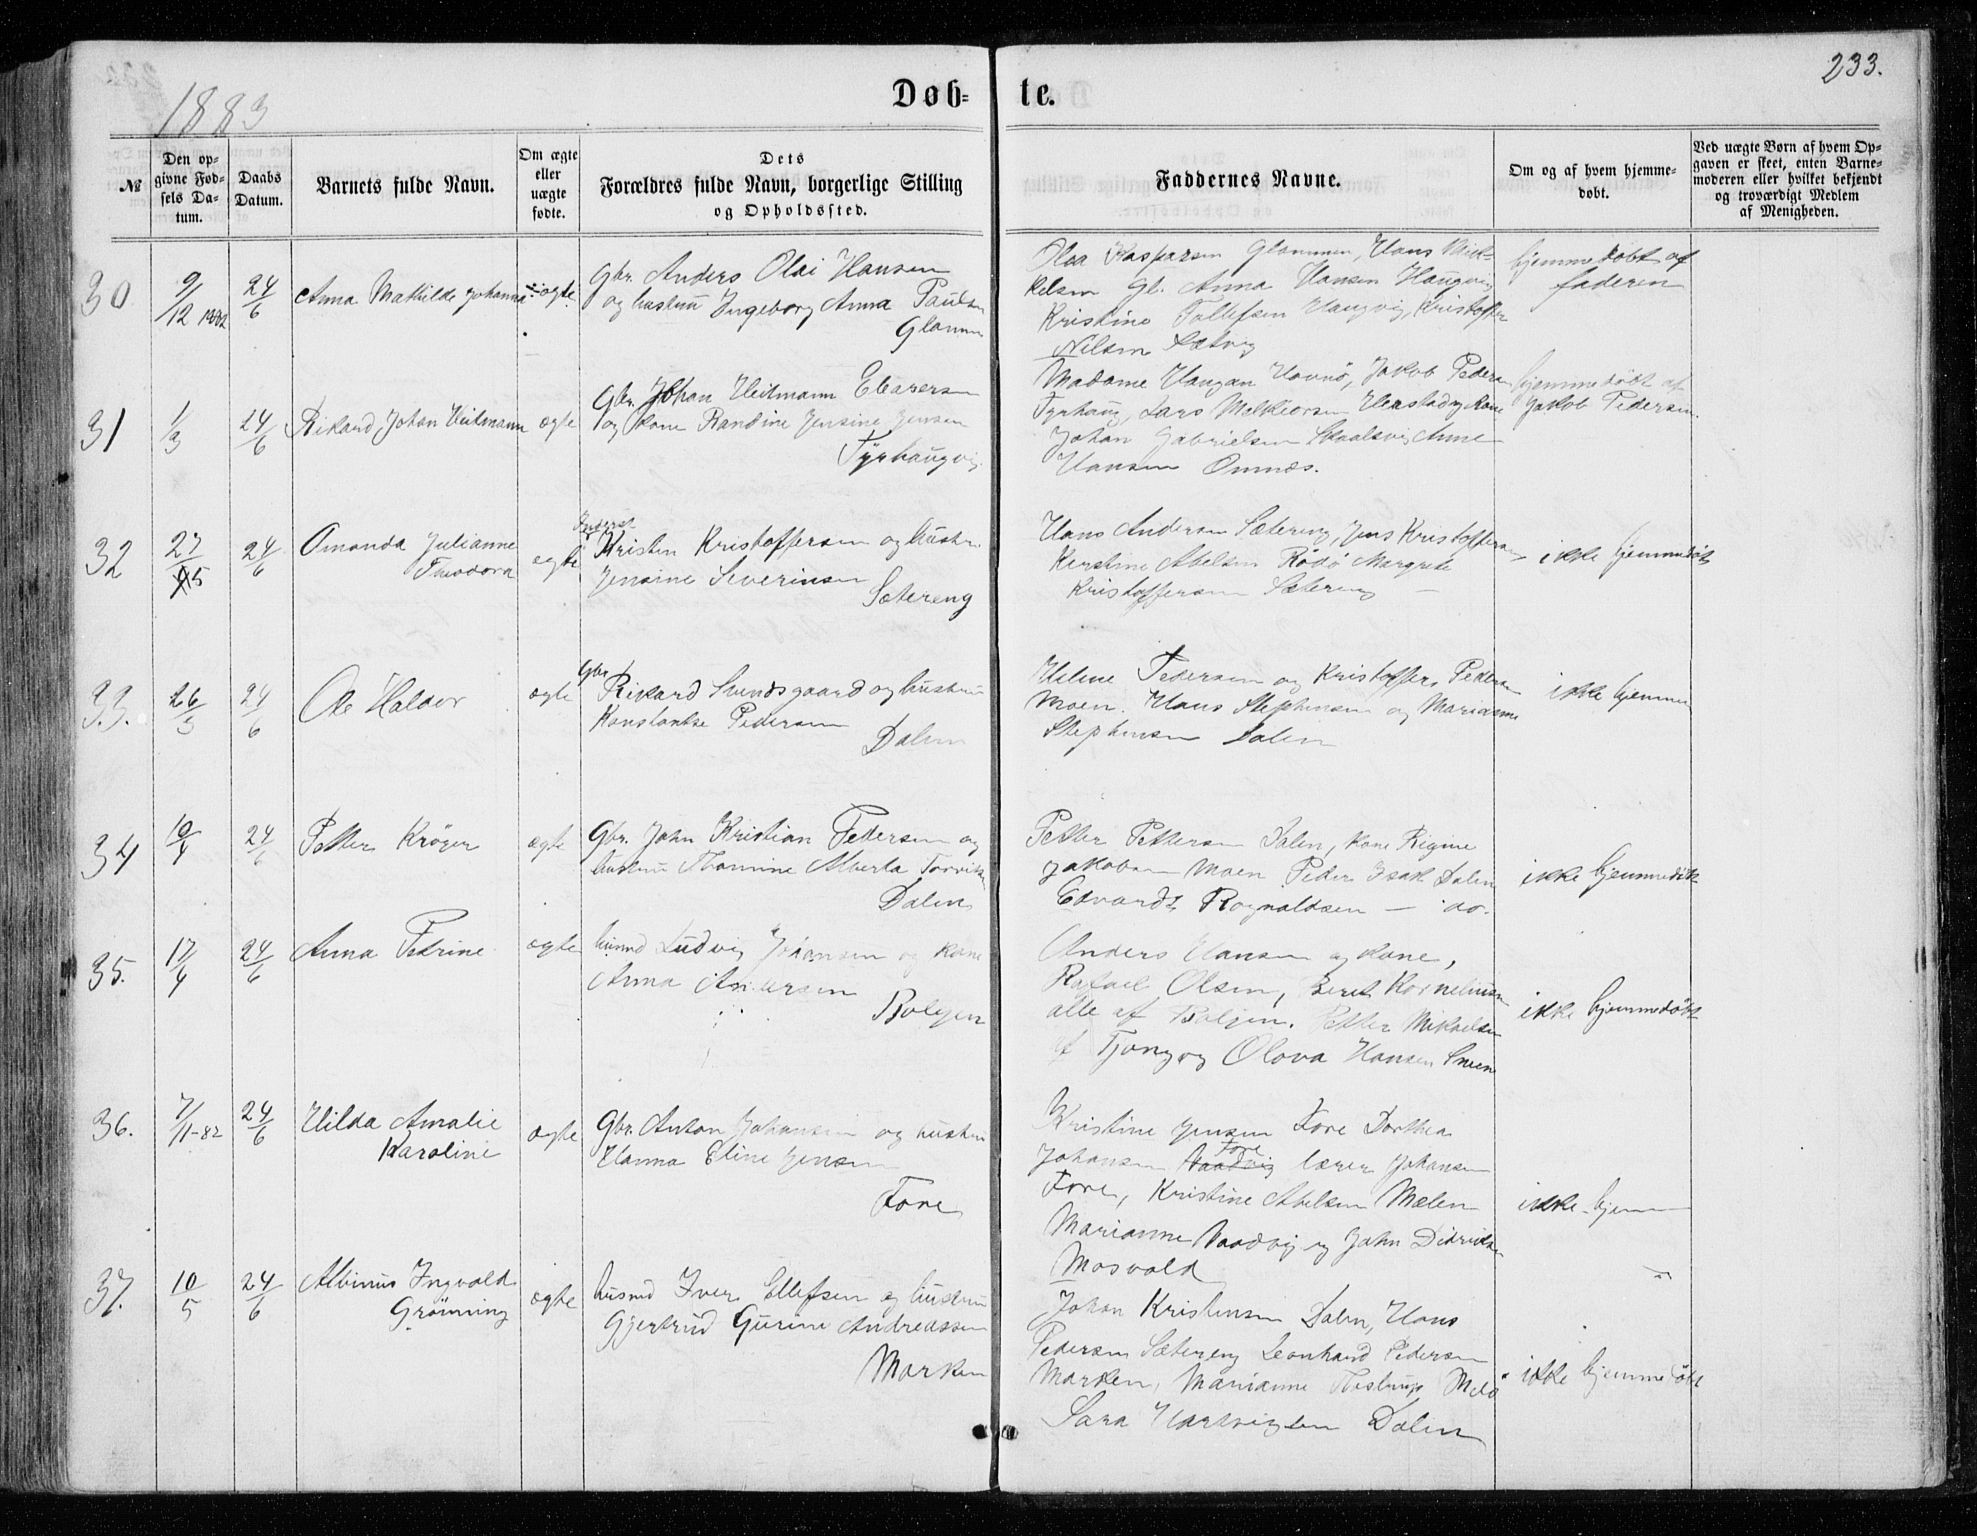 233.
1883
Døb=
te.
№
Den op=
givne Fød=
sels Da=
tum.
Daabs
Datum.
Barnets fulde Navn.
Om ægte
eller
uægte
fødte.
Dets
Forældres fulde Navn, borgerlige Stilling
og Opholdssted.
Faddernes Navne.
Om og af hvem hjemme=
døbt.
Ved uægte Børn af hvem Op=
gaven er skeet, enten Barne=
moderen eller hvilket bekjendt
og troværdigt Medlem
af Menigheden.
30
9/12 1882
24/6
Anna Mathilde Johanna
ægte
Gbr. Anders Olai Hansen
og hustru Ingeborg Anna Paulsen
Glommen
Olea Kaspersen Glommen, Hans Mik-
kelsen Gl. Anna Hansen Haugvig
Kristine Tollefsen Haugvig, Kristoffer
Nilsen Sætvig
hjemmedøbt af
faderen
31
1/3
24/6
Rikard Johan Heitmann
ægte
Gbr. Johan Heitmann Eliasersen
og kone Randine Jensine Jensen
Tyrhaugvig
Madame Haugan Havnø, Jakob Pedersen
Tyrhaug, Lars Melkiorsen Henstad og kone
Johan Gabrielsen Skaalsvig Anne
Hansen Omnæs.
hjemmedøbt af
Jakob Pedersen
32
27/5
24/6
Amanda Julianne
Theodora
ægte
Inderst
Kristen Kristoffersen og hustru
Jensine Severinsen
Sætereng
Hans Andersen Sætereng, Jens Kristoffersen
Kirstine Abelsen Rødø Margrete
Kristoffersen Sætereng —
ikke hjemmedøbt
33.
26/3
24/6
Ole Haldor
ægte
Gbr.
Rikard Svendsgaard og hustru
Konstantse Pedersen
Dalen
Helene Pedersen og Kristoffer Pedersen
Moen. Hans Stephensen og Marianne
Stephensen Dalen
ikke hjemme
34
10/4
24/6
Petter Krøger
ægte
Gbr. John Kristian Pedersen og
hustru Alberta
Dalen
Petter Pettersen Dalen, kone Regine
Jakobsen Moen Peder Isak Dalen
Edvard Rognaldsen — do.
ikke hjemmedøbt
35.
17/4
24/6
Anna Petrine
ægte
husmd Ludvig Johansen og kone
Anna Andersen
Bolgen
Anders Hansen og kone,
Rafael Olsen, Beret Kornelius
alle af Bolgen. Petter Mikkelsen
af Tjong og Olava Hansen
ikke hjemmedøbt
36.
7/11-82
24/6
Hilda Amalie
Karoline
ægte
Gbr. Anton Johansen og hustru
Hanna Eline Jensen
Fore
Kristine Jensen Fore Dorthea
Fore
Johansen Vaadvig lærer Johansen
Fore, Kristine Abelsen Mælen
Marianne Vaadvig og John Didriksen
Mosvold
ikke hjem
37.
10/5
24/6
Albinus Ingvald
Grønning
ægte
husmd Iver Ellefsen og hustru
Gjertrud Gurine Andreassen
Marken
Johan Kristensen Dalen, Hans
Pedersen Sætereng Leonhard Pedersen
Marken, Marianne Melø
Sara Hartvigsen Dalen
ikke hjemmedøbt